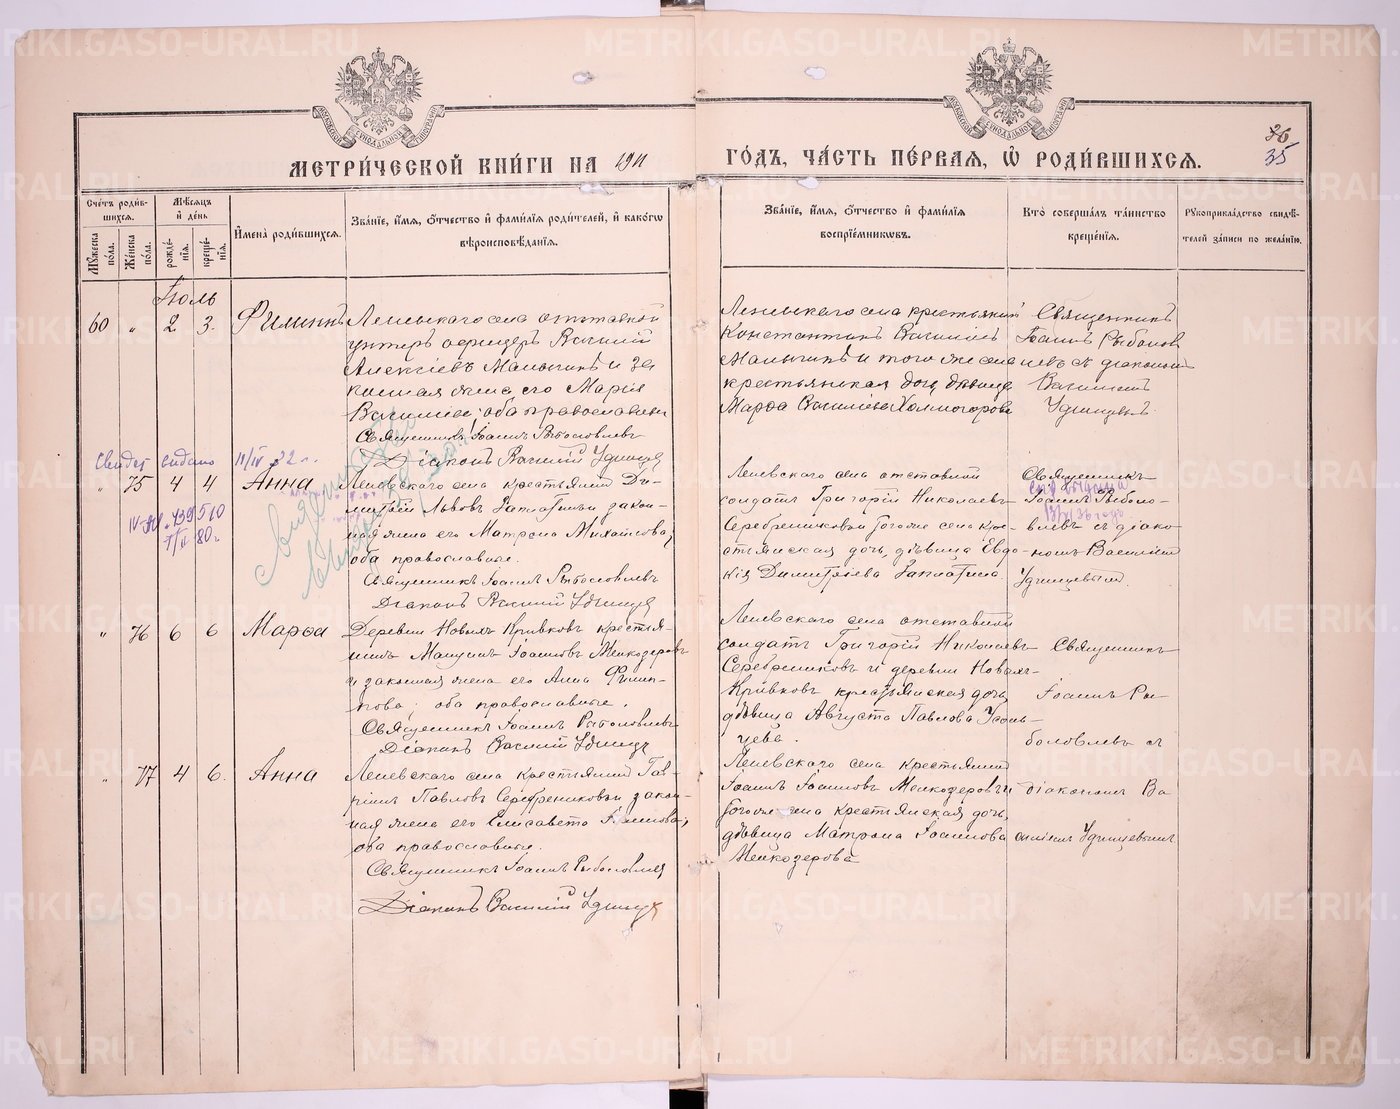 МЕТРИ́ЧЕСКОЙ КНИ́ГИ НА 1911
ГО́ДЪ, ЧА́СТЬ ПЕ́РВАЯ, Ѡ РОДИ́ВШИХСЯ.
36
35
Сче́тъ роди́в-
шихся.
Мѣ́сяцъ
и҆ де́нь
Му́жеска
по́ла.
Же́нска
по́ла.
рожде́-
нїя.
креще́-
нїя.
И҆мена̀ роди́вшихся.
Зва́нїе, и҆́мя, ѻ҆́тчество и҆ фамилїя роди́телей, и҆ како́гѡ
вѣроисповѣ́данїя.
Зва́нїе, и҆́мя, ѻ҆́тчество и҆ фами́лїя
воспрїе́мникѡвъ.
Кто̀ соверша́лъ та́инство
креще́нїя.
Рукоприкла́дство свидѣ́-
телей за́писи по жела́нїю.
Іюль
60 " 2 3. Филиппъ
Леневскаго села отставной
унтеръ офицеръ Василій
Алексѣевъ Малыгинъ и за
конная жена его Марія
Василиева; оба православные
Священникъ Іоаннъ Рыболовлевъ
Діаконъ Василій Удинцевъ
Леневскаго села крестьянинъ
Константинъ Василіевъ
Малыгинъ и того же села
крестьянская дочь дѣвица
Марѳа Василіева Холмогорова
Священникъ
Іоаннъ Рыболов
левъ съ діакономъ
Василіемъ
Удинцевымъ.
Свидет выдано 11/IV 32 г.
" 75 4 4 Анна
Леневскаго села крестьянинъ Ди-
митрій Львовъ Заплатинъ закон-
ная жена его Матрона Михаилова,
оба православные.
Священникъ Іоаннъ Рыболовлевъ
Діаконъ Василій Удинцевъ
Леневскаго села отставной
солдатъ Григорій Николаевъ
Серебрениковъ того же села кре-
стьянская дочь, дѣвица Евдо-
кія Димитріева Заплатина
Священникъ
Іоаннъ Рыболо-
влевъ съ діако-
номъ Василіемъ
Удинцевымъ.
" 76 6 6 Марѳа
Деревни Новыхъ Кривковъ крестья-
нинъ Іоанновъ Мелкозеровъ
и законная жена его Анна Филип-
пова; оба православные.
Священникъ Іоаннъ Рыболовлевъ
Діаконъ Василій Удинцевъ
Леневскаго села отставной
солдатъ Григорій Николаевъ
Серебрениковъ и деревни Новыхъ
Кривковъ крестьянская дочь
дѣвица Августа Павлова Усоль-
цева.
Священникъ
Іоаннъ Ры-
боловлевъ съ
" 77 4 6. Анна
Леневскаго села крестьянинъ Гав-
ріилъ Павловъ Серебрениковъ закон-
ная жена его Елисавета Іоаннова;
оба православные.
Священникъ Іоаннъ Рыболовлевъ
Діаконъ Василій Удинцевъ
Леневскаго села крестьянинъ
Іоаннъ Іоанновъ Мелкозеровъ и
того же села крестьянская дочь,
дѣвица Матрона Іоаннова
Мелкозерова
діакономъ Ва
силіемъ Удинцевымъ
METRIKI.GASO-URAL.RU